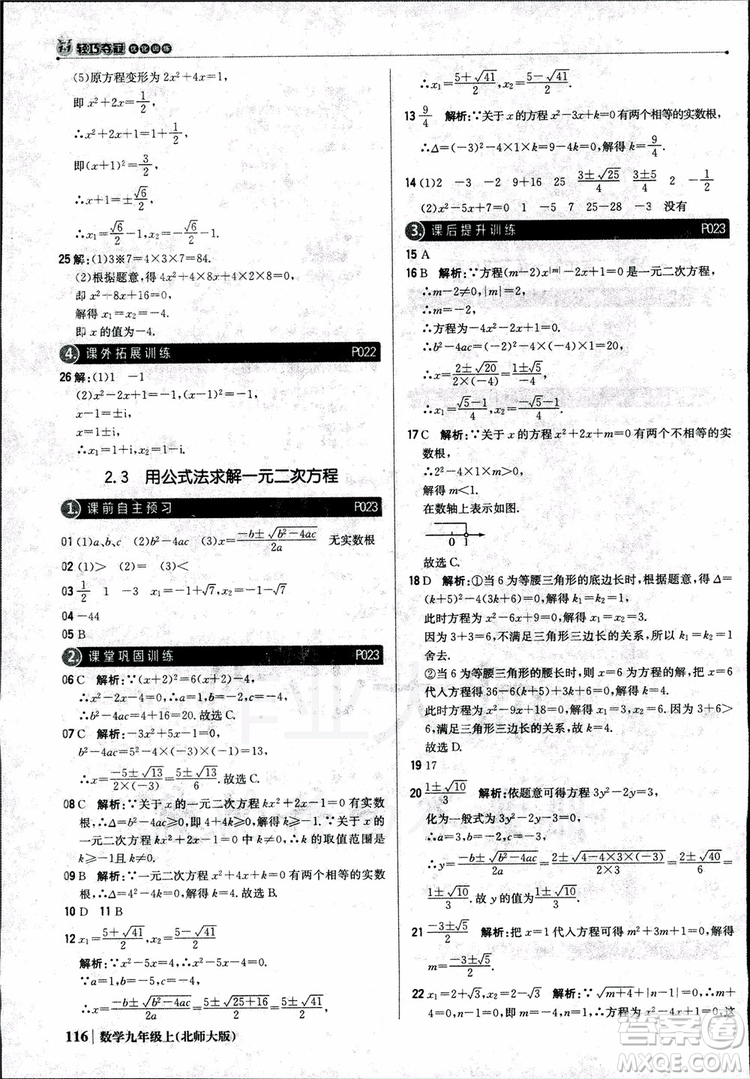 轻巧夺冠 优化训练
(5)原方程变形为 2x²+4x=1,
即 x²+2x=1/2,
即 x²+2x+1=1+1/2,
即(x+1)²=3/2,
∴x+1=±√6/2,
∴x₁=√6/2−1,x₂=−√6/2−1.
25 解:(1)3※7=4×3×7=84.
(2)根据题意,得 4x²+8x+4×4=0,
即 8x+8+16=0,
解得 x=−4.
即 x 的值为−4.
4. 课外拓展训练 P022
26 解:(1)1 −1
(2)x²−2x=−1−1,
x−1=±i,
x=1±i,
∴x₁=1+i,x₂=1−i.
2.3 用公式法求解一元二次方程
1. 课前自主预习 P023
01 (1)a、b、c (2)b²−4ac (3)x=(−b±√(b²−4ac))/2a 无实数根
02 (1)> (2)= (3)<
03 1/2 1 −3 x₁=−1+√7,x₂=−1−√7
04 −44
05 B
2. 课堂巩固训练 P023
06 C 解析:∵(x+2)²=6(x+2)−4,
∴x²−2x−4=0,
∴a=1,b=−2,c=−4.故选 C.
07 C 解析:−3x²+5x−1=0,
b²−4ac=5²−4×(−3)×(−1)=13,
∴x=(−5±√13)/(2×(−3))=(5±√13)/6.故选 C.
08 C 解析:∵关于 x 的一元二次方程 kx²+2x−1=0 有实数
根,∴Δ=b²−4ac=4+4k≥0,解得 k≥−1.∵kx²+2x−1=0 为
一元二次方程,∴k≠0,则 k 的取值范围是
k≥−1 且 k≠0.故选 C.
09 B 解析:∵一元二次方程 x²−4x+k=0 有两个相等的实数
根,∴Δ=4²−4k=0,解得 k=4.故选 B.
10 D 11 B
12 x₁=(5+√41)/2,x₂=(5−√41)/2
解析:∵x²−5x−4=0,
∴a=1,b=−5,c=−4,
∴x=(−b±√(b²−4ac))/2a=(5±√(25+16))/(2×1)=(5±√41)/2,
∴x₁=(5+√41)/2,x₂=(5−√41)/2.
13 9/4 解析:∵关于 x 的方程 x²−3x+k=0 有两个相等的实数根,
∴Δ=(−3)²−4×1×k=9−4k=0,解得 k=9/4.
14 (1)2 −3 −2 9+16 25 (3±√25)/4 (3±5)/4 2 −1/2
(2)x²−5x+7=0 1 −5 7 25−28 −3 没有
3. 课后提升训练 P023
15 A
16 B 解析:∵方程(m−2)x^|m|−2x+1=0 是一元二次方程,
∴m−2≠0,|m|=2,
∴m=−2.
∴方程为−4x²−2x+1=0,
∴x=(2±√20)/(2×(−4))=(2±2√5)/(2×(−4)),
∴x₁=(√5−1)/4,x₂=(−√5−1)/4.
17 C 解析:∵关于 x 的方程 x²−2x+m=0 有两个不相等的实数根,
∴Δ=(−2)²−4m=4−4m>0,
解得 m<1.
在数轴上表示如图.
0 1
故选 C.
18 D 解析:①当 6 为等腰三角形的底边长时,根据题意,得 Δ=
(k+5)²−4×9k=0,解得 k₁=k₂=1,
∴两腰长为 3,3,
∵3+3=6,不满足三角形三边长的关系,所以 k₁=k₂=1
舍去.
②当 6 为等腰三角形的一腰长时,则 x=6 是方程的解,把 x=6
代入方程得 36−6(k+5)+9k=0,解得 k=−2,
∴方程为 x²−9x+18=0,解得 x₁=3,x₂=6,
3,6,6 满足三角形三边长的关系,故 k=−2.
故选 D.
19 17
20 (1±√10)/3 解析:依题意可得方程 3y²−2y=3,
化为一般式为 3y²−2y−3=0,
∴a=3,b=−2,c=−3,
∴y=(−b±√(b²−4ac))/2a=(2±√(4−4×3×(−3)))/(2×3)=(2±2√10)/(2×3)=
(1±√10)/3.
21 (−3±√5)/2 解析:把 x=1 代入方程可得 m²+3m+1=0,解得
m=(−3±√5)/2.
22 x₁=2+√3,x₂=2−√3 解析:∵√(m+4)+|n−1|=0,
∴m+4=0,n−1=0,解得 m=−4,n=1,∴方程为 x²−4x+1=0,这
116 数学九年级上(北师大版)
答案圈
MXQE.COM